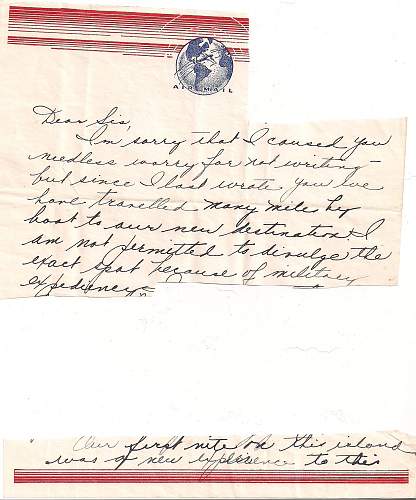 AIR MAIL
Dear Sis,
I'm sorry that I caused you
needless worry for not writing —
but since I last wrote you we
have travelled many mile by
boat to our new destination. I
am not permitted to divulge the
exact spot because of military
expediency
Our first nite on this island
was a new experience to this